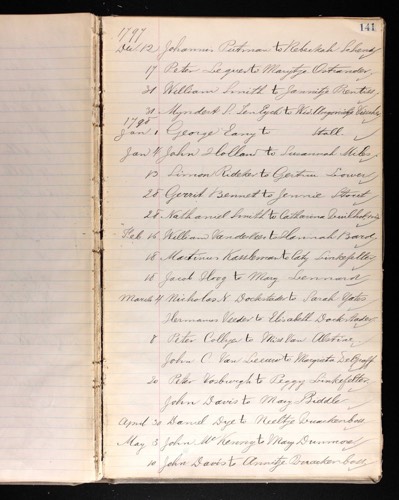 141
1797
Dec 12 Johannis Putman to Rebeckah Schenk
17 Peter Lequer to Marytje Ostrander
31 William Smith to Jannitje Prentiss
31 Myndert S. Ten Eyck to
1798
Jan 1 George Eany to Stall.
Jan 4 John Holland to Susannah Miles
13 Simon Rideker to Gertrue Lower
28 Gerrit Bennet to Jennie Staret
28 Nathaniel Smith to Catharina
Feb 16 William Vanderveer to Hannah Board
18 Martinus Kassleman to Caty Linkefelter
18 Jacob Hoog to Mary Lennard
March 4 Nicholas N. Dockstader to Sarah Yates
Hermanus Veeder to Elisabeth Dockstader
8 Peter Collyer to Miss Van Alstine
John C. Van to Margreta DeGraff
20 Peter Vosburgh to Peggy Linkefelter
John Davis to Mary Biddle
April 30 Daniel Dye to Neeltje Quackenboss
May 3 John Mc to Mary Dunmore
10 John Davis to Annitje Quackenboss